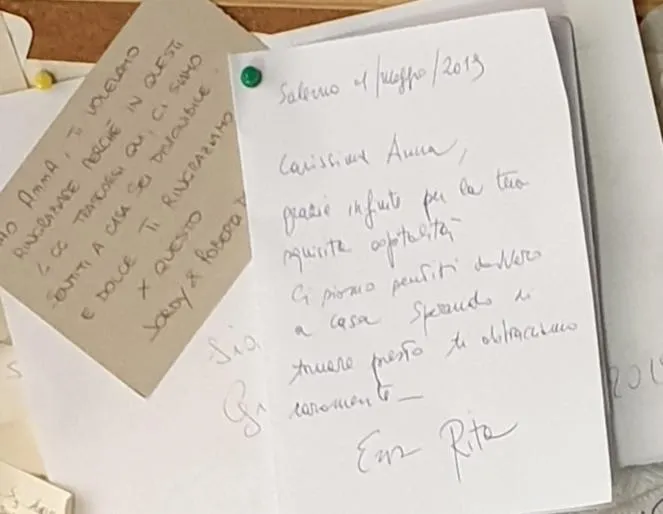 AMMA, TI VOLEVAMO
RINGRAZIARE PERCHÉ IN QUESTI
4 GG TRASCORSI QUI, CI SIAMO
SENTITI A CASA SEI DISPONIBILE
E DOLCE TI RINGRAZIAMO
X QUESTO
JORDY & ROBERTA
Salerno 1/maggio/2019
Carissima Anna,
grazie infinite per la tua
squisita ospitalità
Ci siamo sentiti davvero
a casa sperando di
tornare presto ti abbracciamo
caramente
Rita